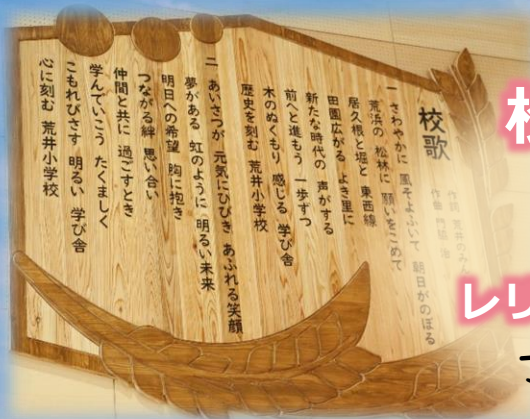 校歌
作詞 荒井のみん
作曲 門脇 治
一 さわやかに 風そよふいて 朝日がのぼる
荒浜の 松林に 願いをこめて
居久根と堀と 東西線
田園広がる よき里に
新たな時代の 声がする
前へと進もう 一歩ずつ
木のぬくもり 感じる 学び舎
歴史を刻む 荒井小学校
二 あいさつが 元気にひびき あふれる笑顔
夢がある 虹のように 明るい未来
明日への希望 胸に抱き
つながる絆 思い合い
仲間と共に 過ごすとき
学んでいこう たくましく
こもれびさす 明るい 学び舎
心に刻む 荒井小学校
レリ